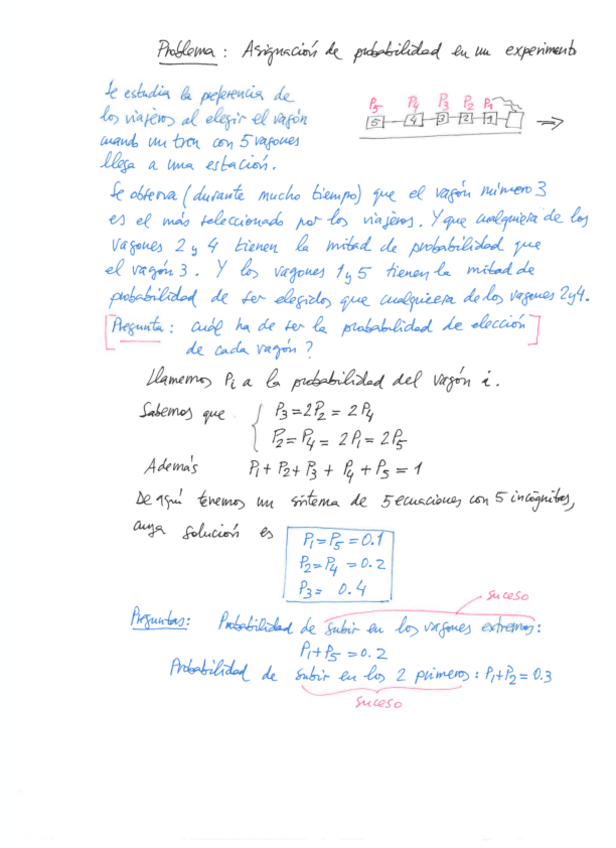 Problema: Asignación de probabilidad en un experimento
Se estudia la preferencia de
los viajeros al elegir el vagón
cuando un tren con 5 vagones
llega a una estación.
P5 P4 P3 P2 P1
5 4 3 2 1
Se observa (durante mucho tiempo) que el vagón número 3
es el más seleccionado por los viajeros. Y que cualquiera de los
vagones 2 y 4 tienen la mitad de probabilidad que
el vagón 3. Y los vagones 1 y 5 tienen la mitad de
probabilidad de ser elegidos que cualquiera de los vagones 2 y 4.
[Pregunta: cuál ha de ser la probabilidad de elección]
de cada vagón?
Llamemos Pi a la probabilidad del vagón i.
Sabemos que { P3 = 2P2 = 2P4
P2 = P4 = 2P1 = 2P5
Además P1 + P2 + P3 + P4 + P5 = 1
De aquí tenemos un sistema de 5 ecuaciones con 5 incógnitas,
cuya solución es
P1 = P5 = 0.1
P2 = P4 = 0.2
P3 = 0.4
suceso
Preguntas: Probabilidad de subir en los vagones extremos:
P1 + P5 = 0.2
Probabilidad de subir en los 2 primeros: P1 + P2 = 0.3
suceso